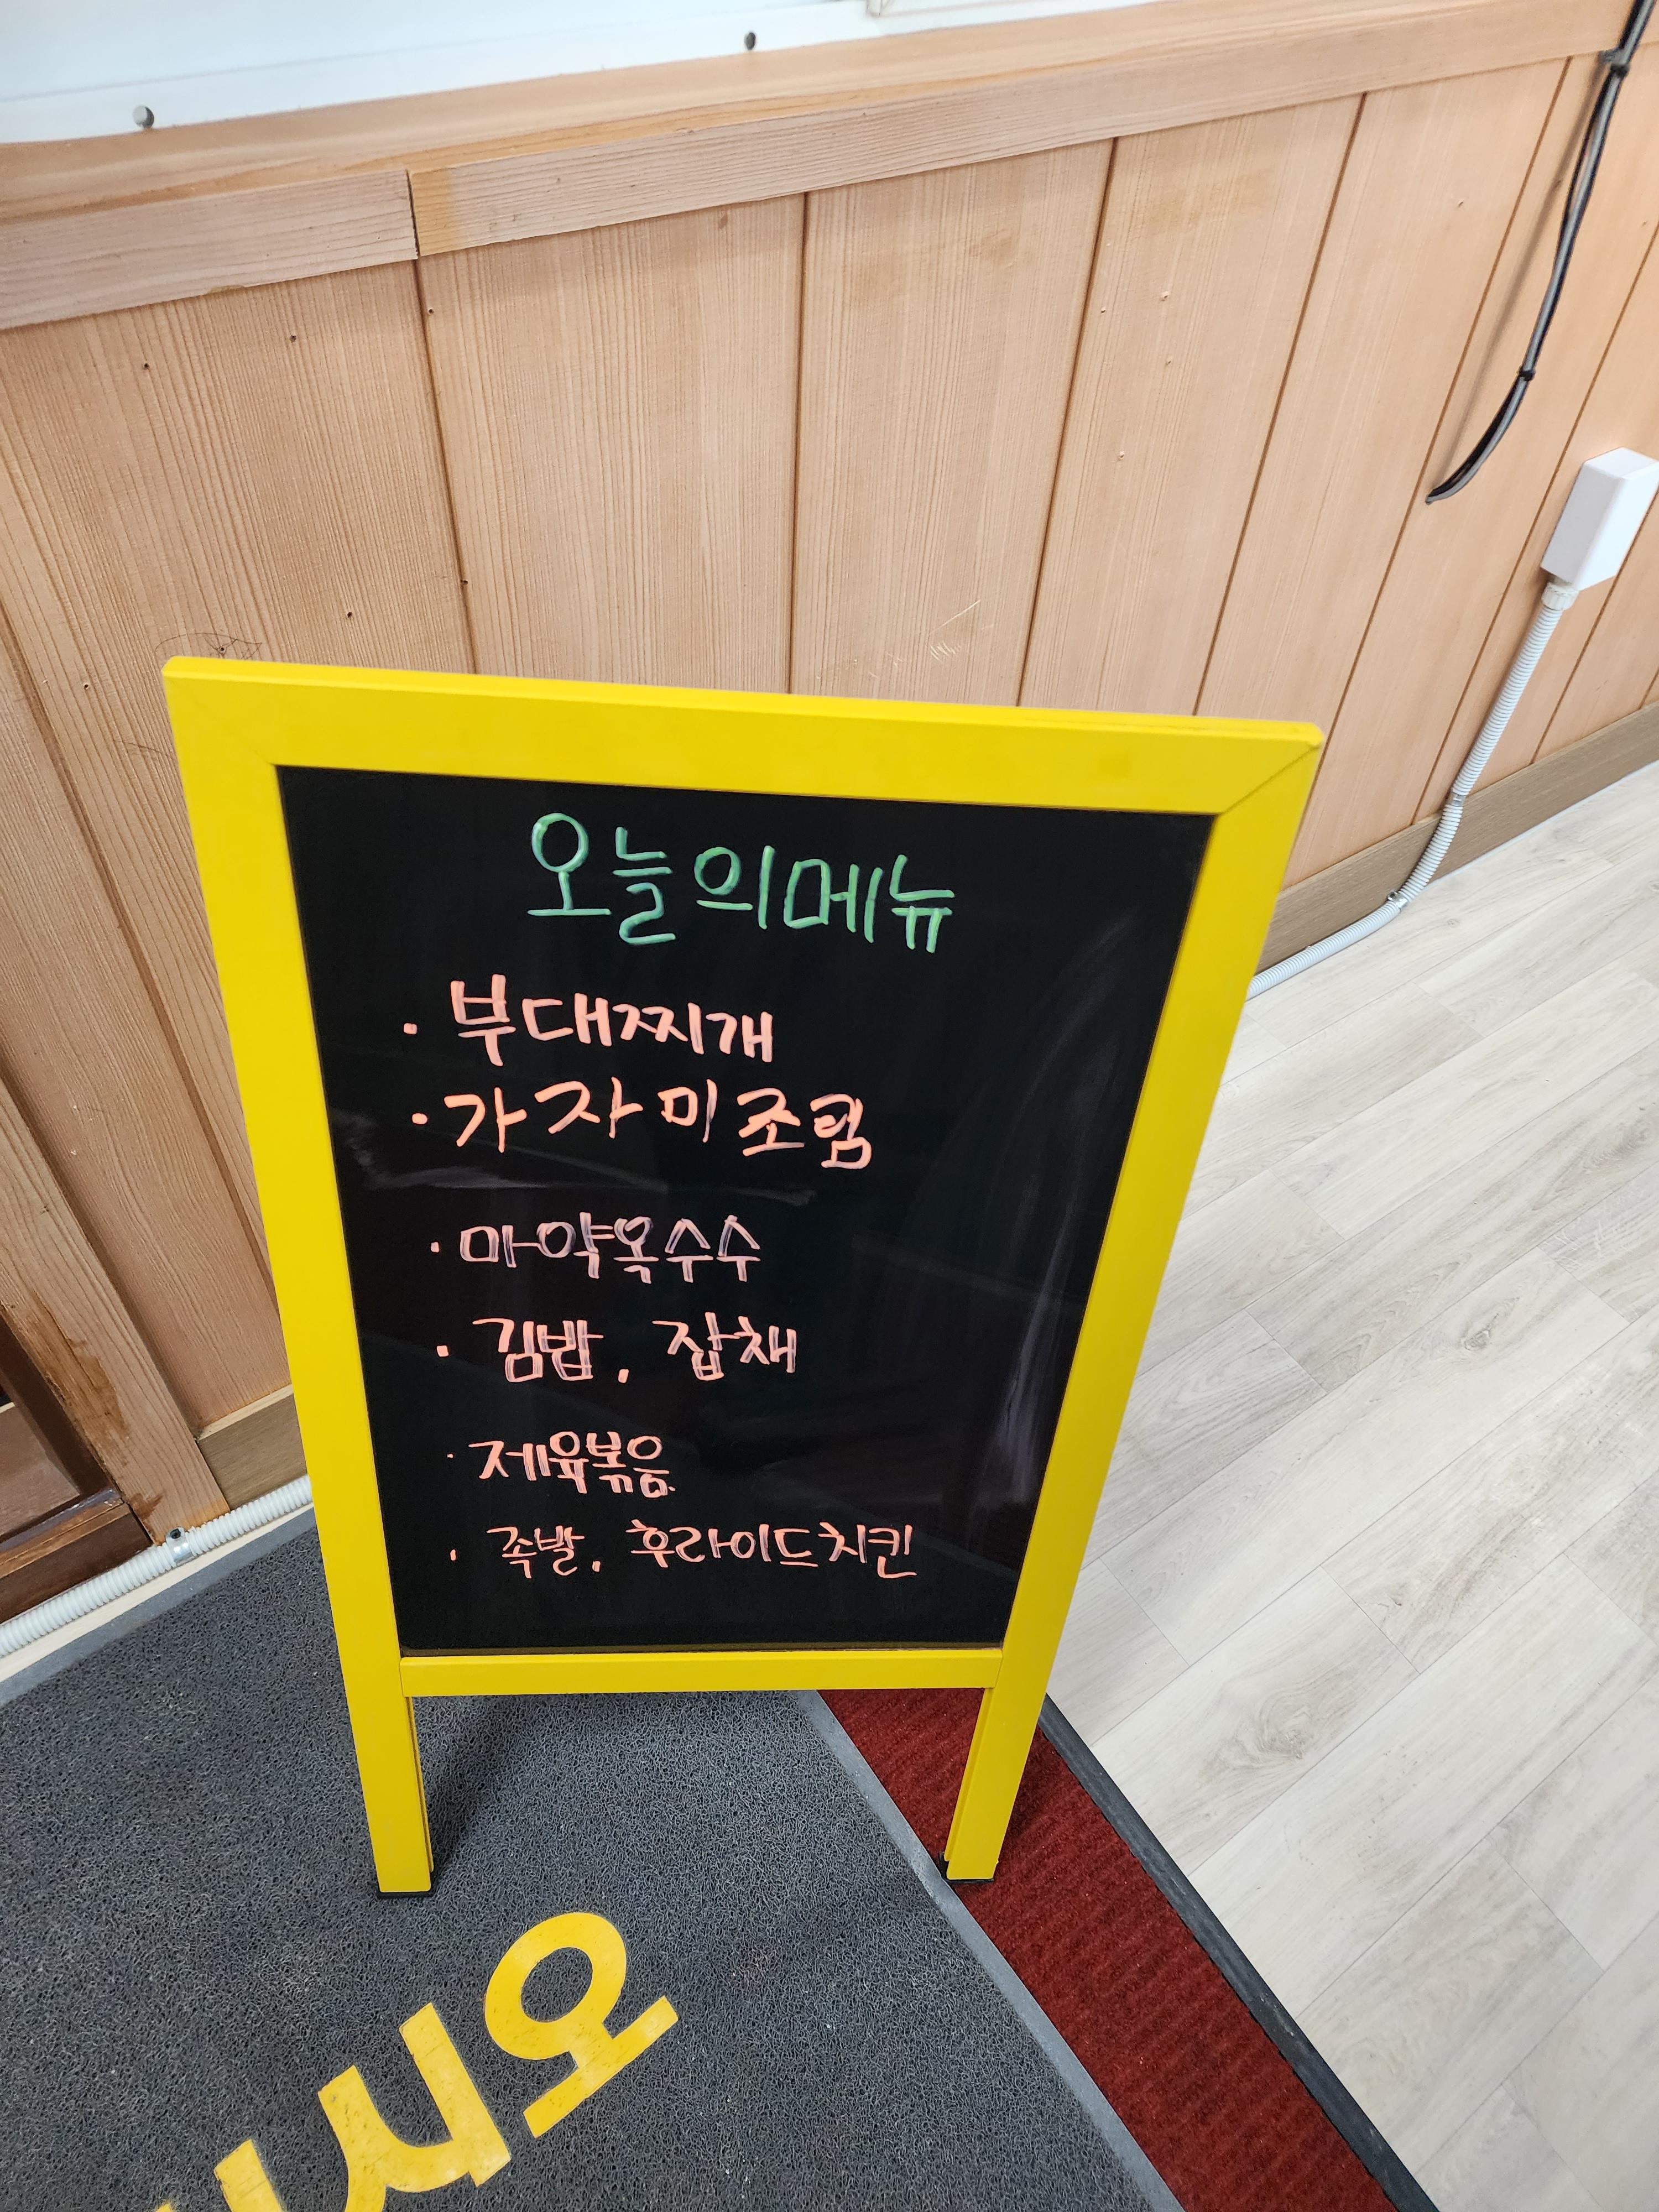 오늘의메뉴
· 부대찌개
· 가자미조림
· 마약옥수수
· 김밥, 잡채
· 제육볶음
· 족발, 후라이드치킨